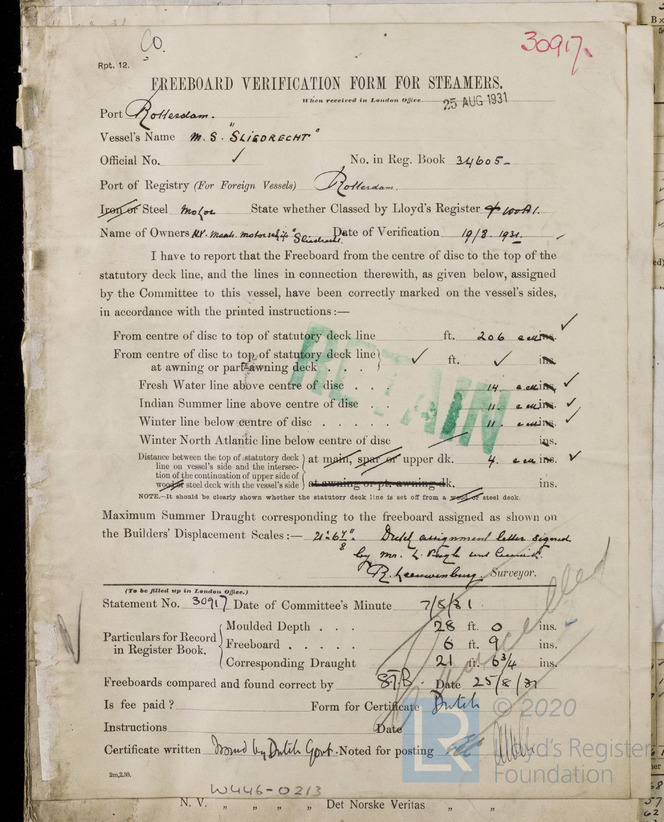 Co.
30917.
Rpt. 12.
FREEBOARD VERIFICATION FORM FOR STEAMERS.
When received in London Office 25 AUG 1931
Port Rotterdam.
Vessel's Name M.S. "SLIEDRECHT"
Official No. ✓ No. in Reg. Book 34605-
Port of Registry (For Foreign Vessels) Rotterdam.
Iron or Steel Motor State whether Classed by Lloyd's Register ✠100A1.
Name of Owners N.V. Maats. Motorschip "Sliedrecht" Date of Verification 19/8.1931.
I have to report that the Freeboard from the centre of disc to the top of the
statutory deck line, and the lines in connection therewith, as given below, assigned
by the Committee to this vessel, have been correctly marked on the vessel's sides,
in accordance with the printed instructions :—
From centre of disc to top of statutory deck line ft. 206 cm ins. ✓
From centre of disc to top of statutory deck line
at awning or part awning deck . . . . ✓ ft. ✓ ins.
Fresh Water line above centre of disc . . . 14. cm ins. ✓
Indian Summer line above centre of disc . . 11. cm ins. ✓
Winter line below centre of disc . . . . . 11. cm ins. ✓
Winter North Atlantic line below centre of disc ins.
Distance between the top of statutory deck
line on vessel's side and the intersec-
tion of the continuation of upper side of
wood or steel deck with the vessel's side
at main, spar or upper dk. 4. cm ins. ✓
at awning or pt. awning dk. ins.
NOTE.—It should be clearly shown whether the statutory deck line is set off from a wood or steel deck.
RETAIN
Maximum Summer Draught corresponding to the freeboard assigned as shown on
the Builders' Displacement Scales :— 21'-6 7/8". Dutch assignment letter signed
by Mr. L. Pugh and
R. Leeuwenburg, Surveyor.
Cancelled
(To be filled up in London Office.)
Statement No. 30917 Date of Committee's Minute 7/8/31
Particulars for Record
in Register Book.
Moulded Depth . . . 28 ft. 0 ins.
Freeboard . . . . . 6 ft. 9 ins.
Corresponding Draught 21 ft. 6 3/4 ins.
Freeboards compared and found correct by Date 25/8/31
Is fee paid ? Form for Certificate Dutch
Instructions Date
Certificate written Issued by Dutch Govt. Noted for posting
2m,2,30.
W446-0213
N. V. „ „ „ „ Det Norske Veritas „ „
LR
© 2020
Lloyd's Register
Foundation